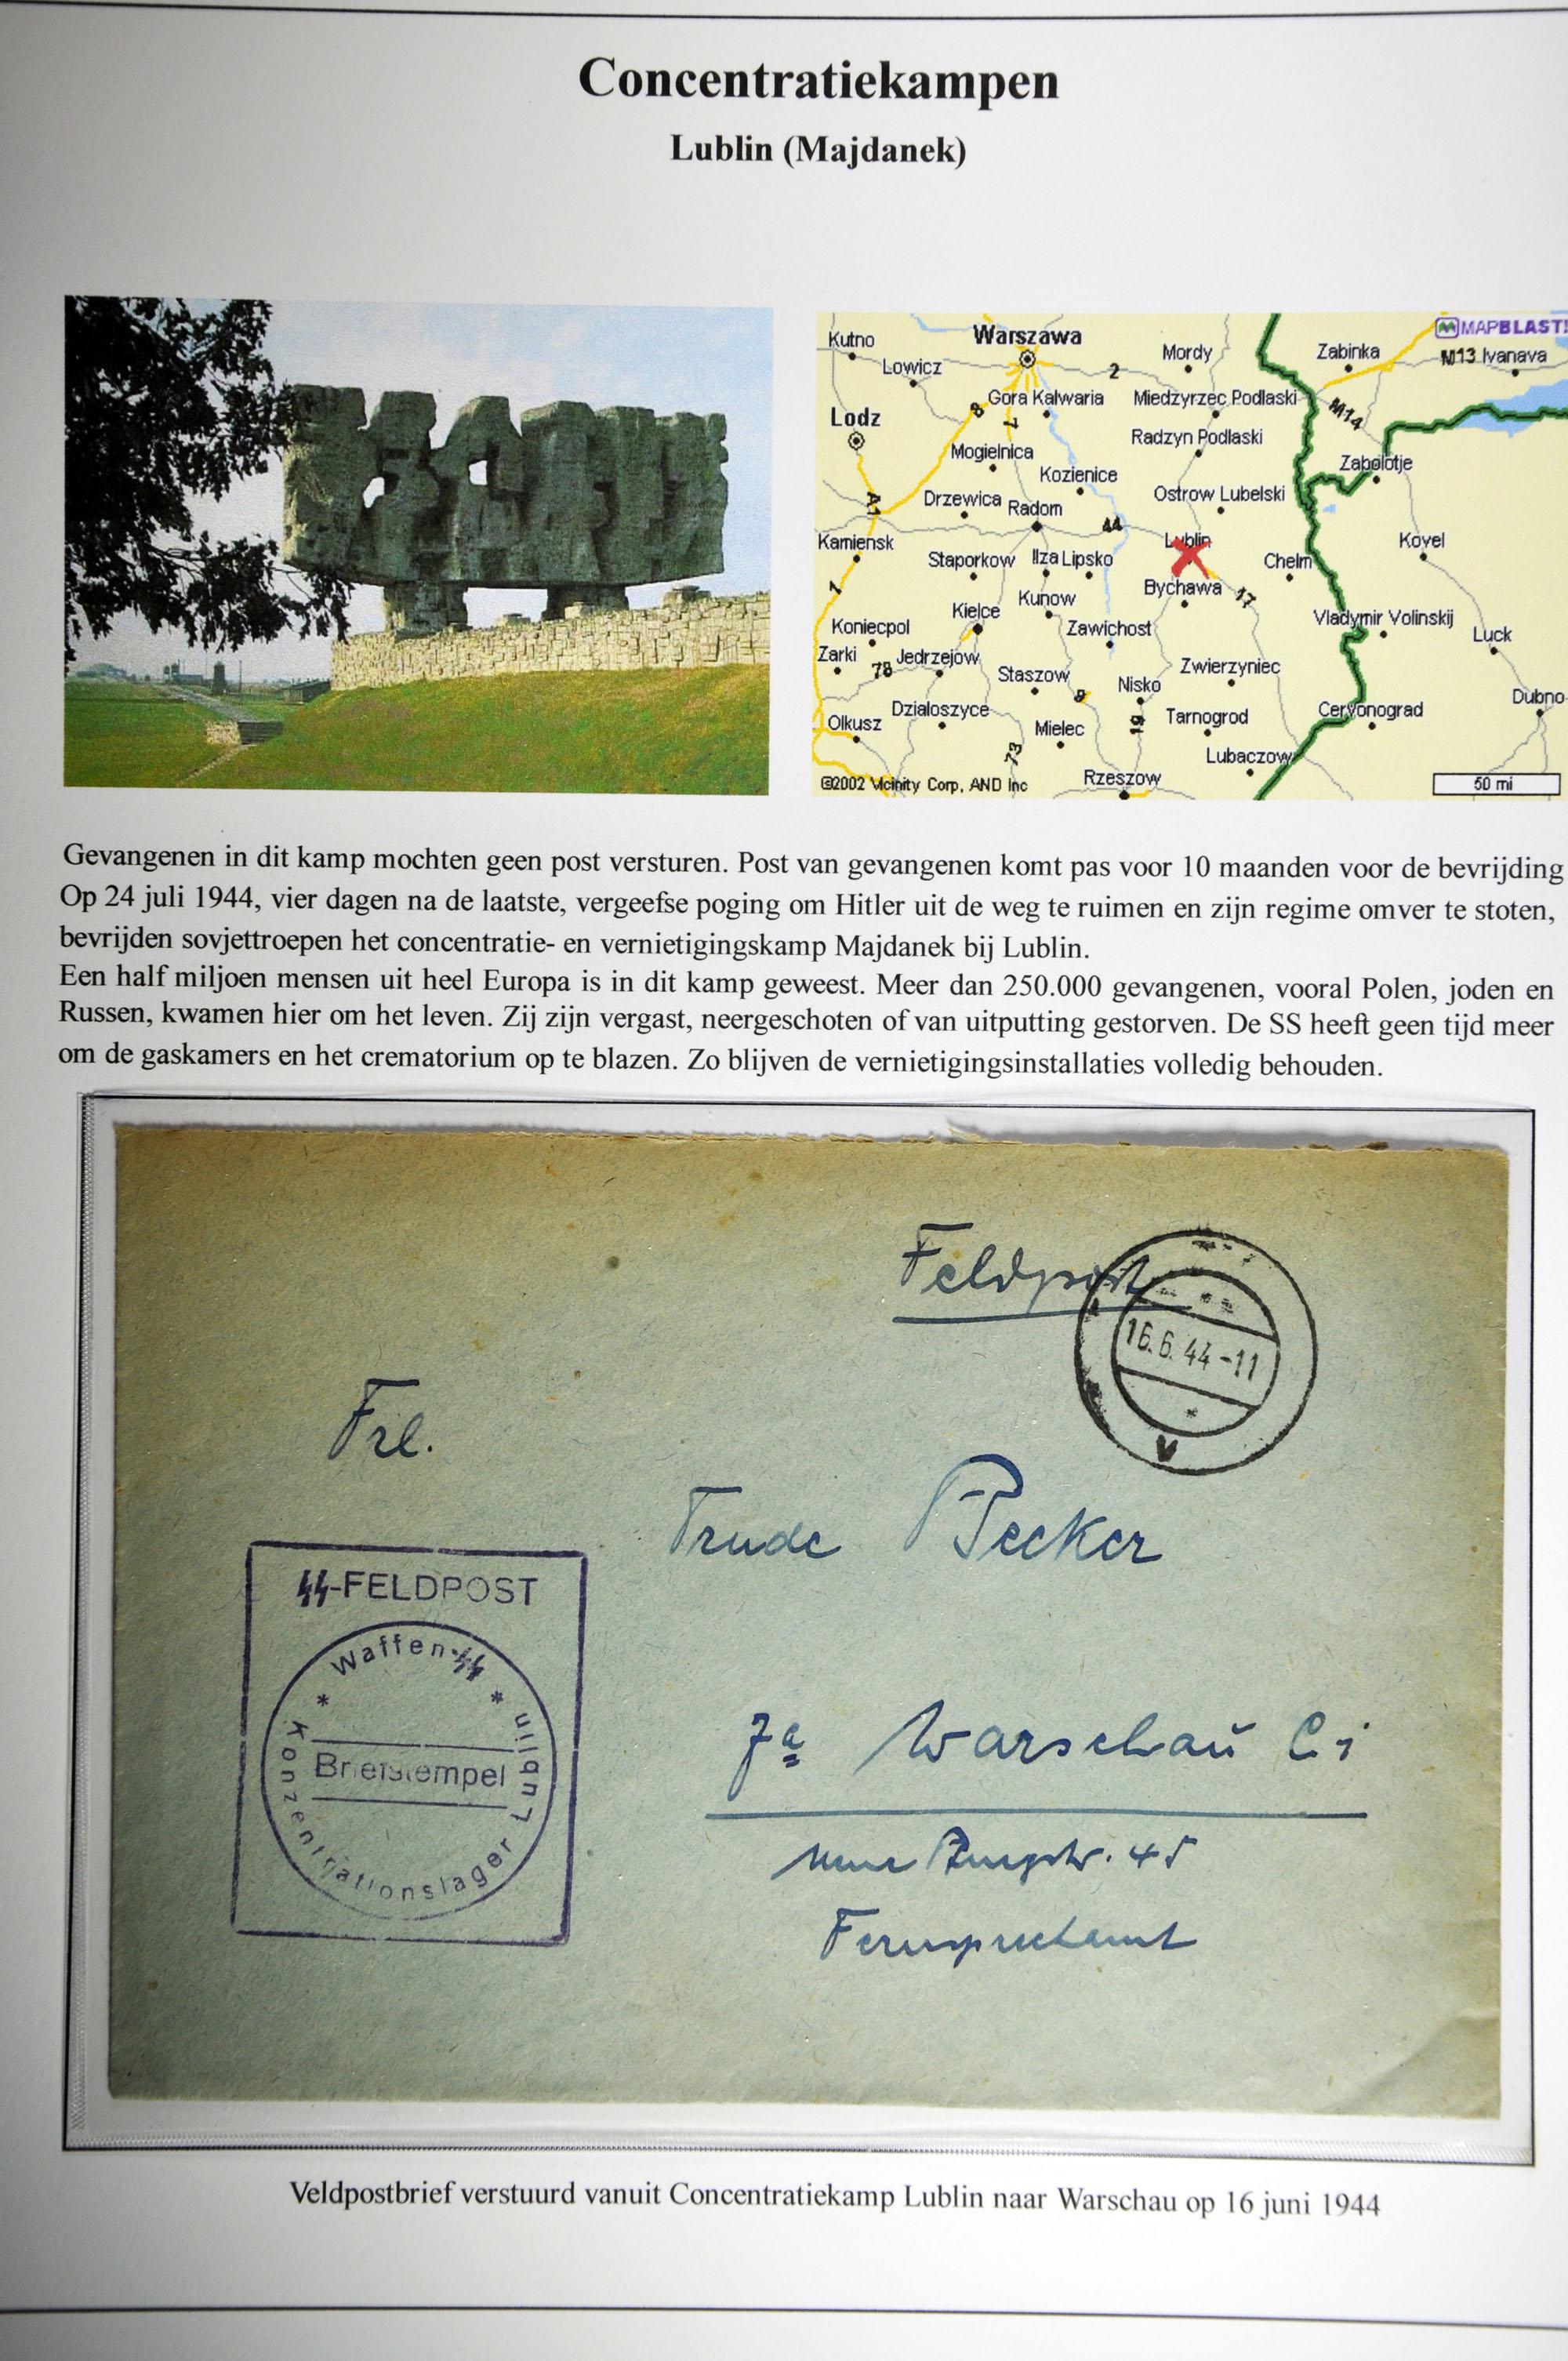 Concentratiekampen
Lublin (Majdanek)
MAPBLAST!
Kutno
Warszawa
Mordy
Zabinka
M13 Ivanava
Lowicz
2
Gora Kalwaria
Miedzyrzec Podlaski
8
7
M14
Lodz
Radzyn Podlaski
Mogielnica
Zabolotje
Kozienice
A1
Drzewica
Radom
Ostrow Lubelski
44
Kamiensk
Lublin
Kovel
Staporkow
Ilza
Lipsko
Chelm
1
Bychawa
17
Kunow
Kielce
Vladymir Volinskij
Koniecpol
Zawichost
Luck
Zarki
78
Jedrzejow
Staszow
Zwierzyniec
9
Nisko
Dubno
Dzialoszyce
19
Olkusz
Mielec
Tarnogrod
Cervonograd
73
Lubaczow
©2002 Vicinity Corp, AND Inc
Rzeszow
50 mi
Gevangenen in dit kamp mochten geen post versturen. Post van gevangenen komt pas voor 10 maanden voor de bevrijding
Op 24 juli 1944, vier dagen na de laatste, vergeefse poging om Hitler uit de weg te ruimen en zijn regime omver te stoten,
bevrijden sovjettroepen het concentratie- en vernietigingskamp Majdanek bij Lublin.
Een half miljoen mensen uit heel Europa is in dit kamp geweest. Meer dan 250.000 gevangenen, vooral Polen, joden en
Russen, kwamen hier om het leven. Zij zijn vergast, neergeschoten of van uitputting gestorven. De SS heeft geen tijd meer
om de gaskamers en het crematorium op te blazen. Zo blijven de vernietigingsinstallaties volledig behouden.
Feldpost
16.6.44-11
Frl.
Trude
SS-FELDPOST
Waffen-SS
Konzentrationslager Lublin
Briefstempel
Warschau C1
45
Fernsprechamt
Veldpostbrief verstuurd vanuit Concentratiekamp Lublin naar Warschau op 16 juni 1944